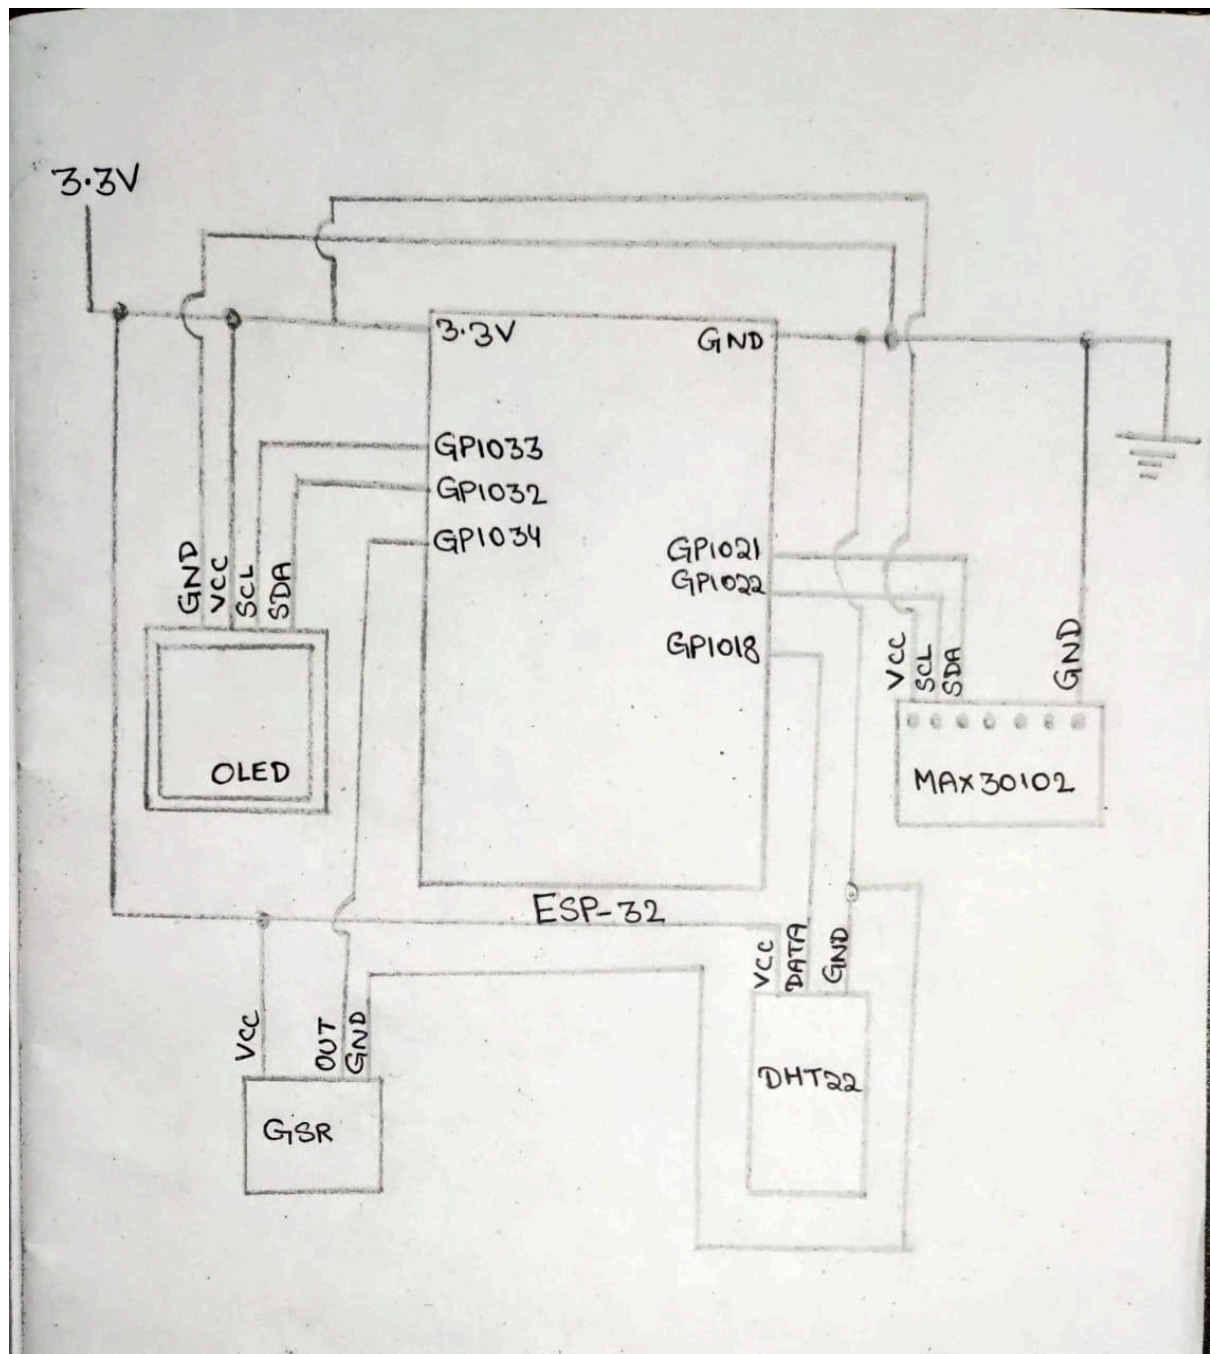 3.3V
3.3V
GND
GPIO33
GPIO32
GPIO34
GPIO21
GPIO22
GPIO18
GND
VCC
SCL
SDA
OLED
VCC
SCL
SDA
GND
MAX30102
ESP-32
VCC
DATA
GND
DHT22
VCC
OUT
GND
GSR